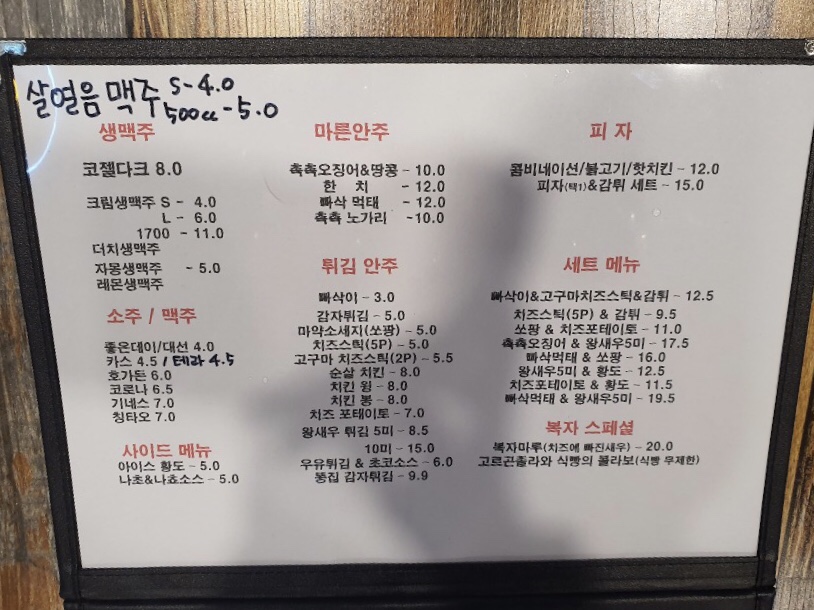 살얼음 맥주 S-4.0
500cc-5.0
생맥주
코젤다크 8.0
크림생맥주 S - 4.0
L - 6.0
1700 - 11.0
더치생맥주
자몽생맥주 - 5.0
레몬생맥주
소주 / 맥주
좋은데이/대선 4.0
카스 4.5 / 테라 4.5
호가든 6.0
코로나 6.5
기네스 7.0
칭타오 7.0
사이드 메뉴
아이스 황도 - 5.0
나초&나쵸소스 - 5.0
마른안주
촉촉오징어&땅콩 - 10.0
한 치 - 12.0
빠삭 먹태 - 12.0
촉촉 노가리 -10.0
튀김 안주
빠삭이 - 3.0
감자튀김 - 5.0
마약소세지(쏘팡) - 5.0
치즈스틱(5P) - 5.0
고구마 치즈스틱(2P) - 5.5
순살 치킨 - 8.0
치킨 윙 - 8.0
치킨 봉 - 8.0
치즈 포테이토 - 7.0
왕새우 튀김 5미 - 8.5
10미 - 15.0
우유튀김 & 초코소스 - 6.0
뚱집 감자튀김 - 9.9
피 자
콤비네이션/불고기/핫치킨 - 12.0
피자(택1)&감튀 세트 - 15.0
세트 메뉴
빠삭이&고구마치즈스틱&감튀 - 12.5
치즈스틱(5P) & 감튀 - 9.5
쏘팡 & 치즈포테이토 - 11.0
촉촉오징어 & 왕새우5미 - 17.5
빠삭먹태 & 쏘팡 - 16.0
왕새우5미 & 황도 - 12.5
치즈포테이토 & 황도 - 11.5
빠삭먹태 & 왕새우5미 - 19.5
복자 스페셜
복자마루(치즈에 빠진새우) - 20.0
고르곤졸라와 식빵의 콜라보(식빵 무제한)